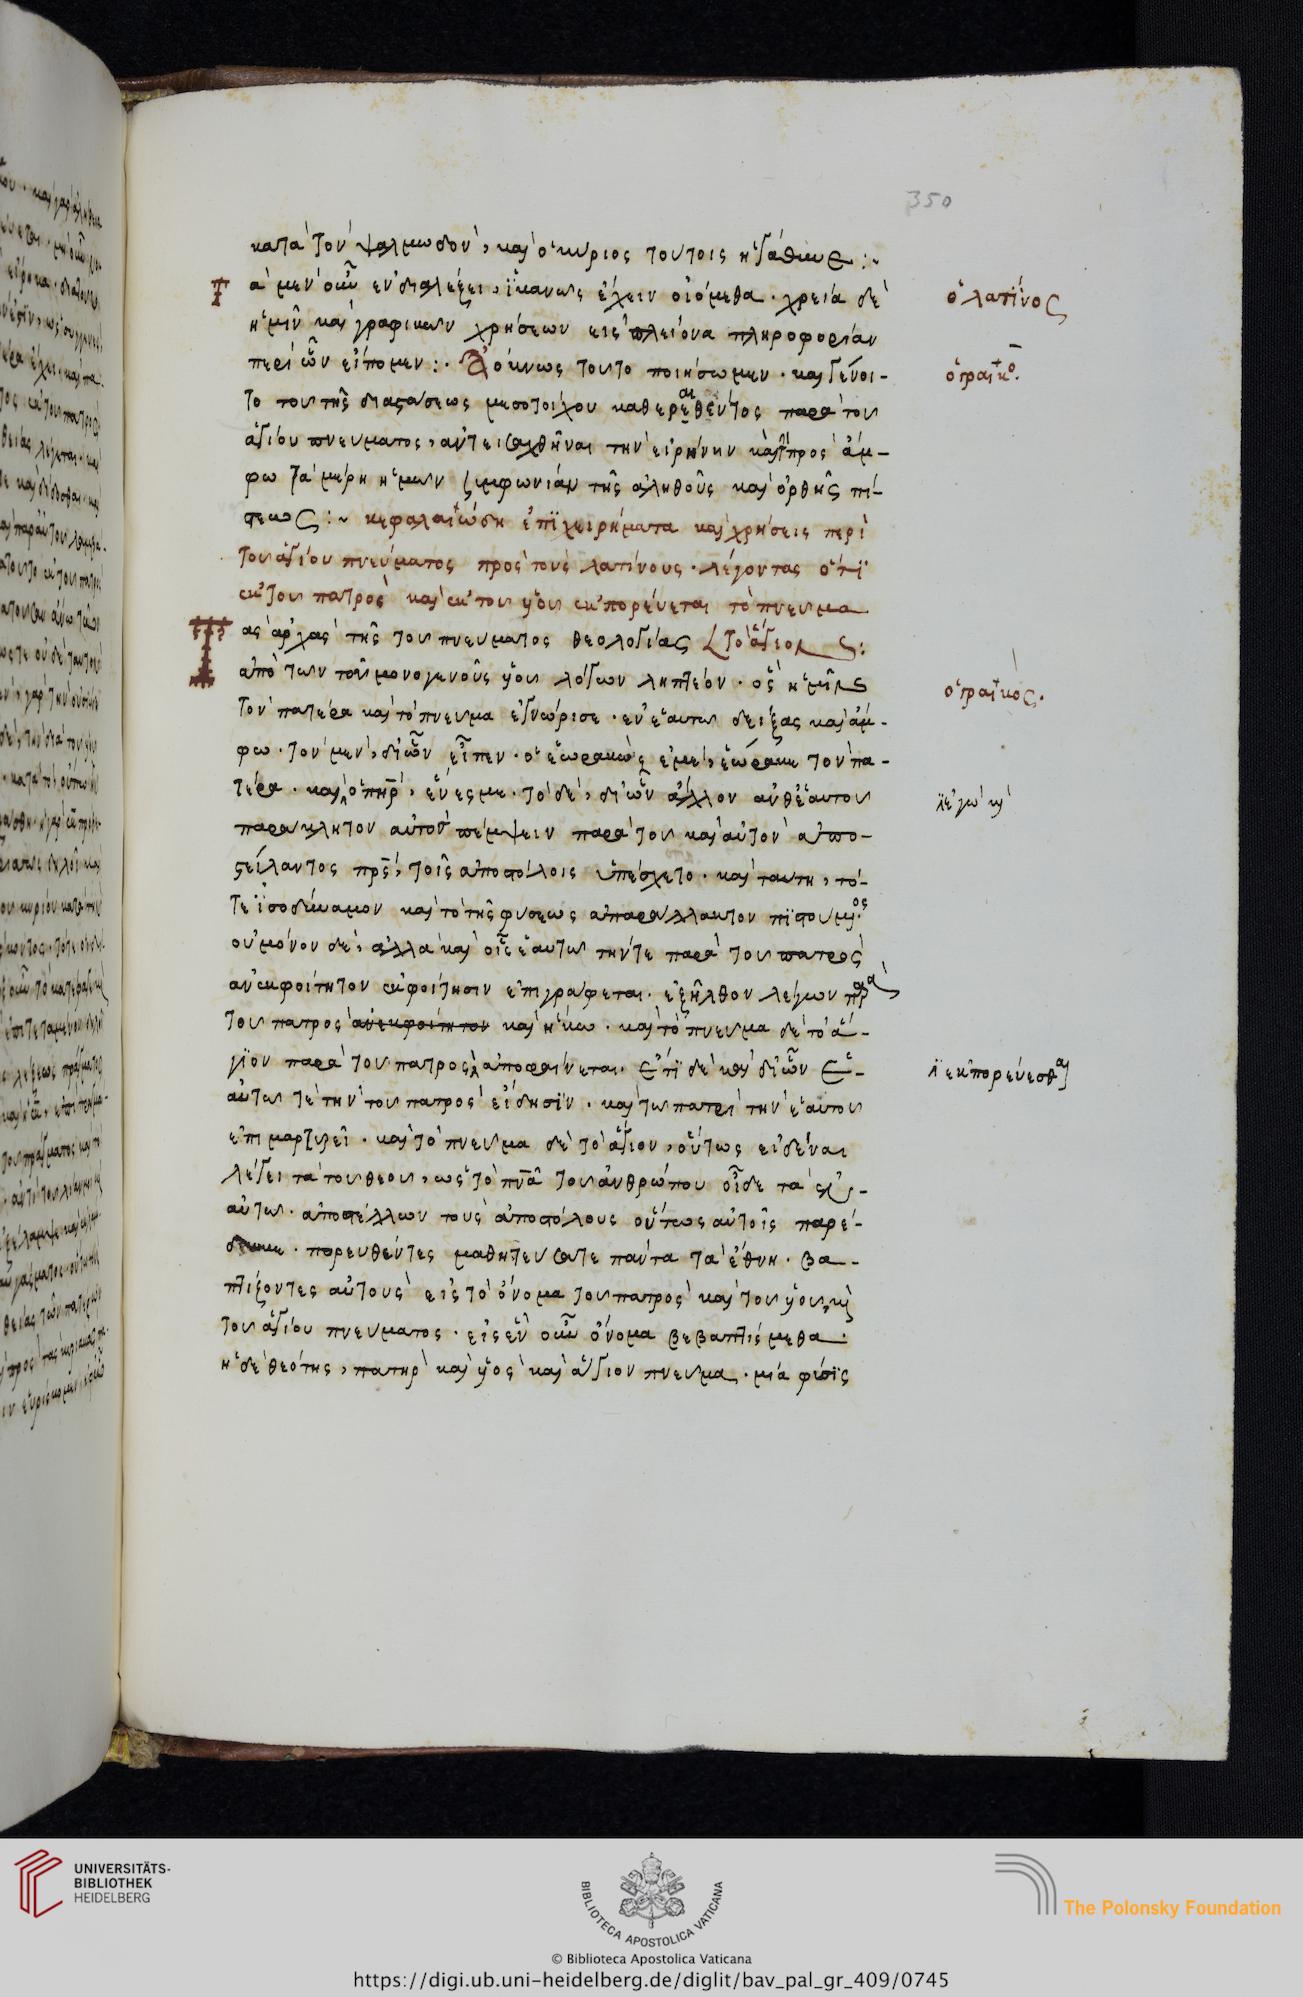 350
κατὰ τὸν ψαλμωδὸν, καὶ ὁ κύριος τούτοις
Τὰ μὲν οὖν ἐν διαλέξει, ἱκανῶς ἔχειν οἰόμεθα. χρεία δὲ
ὁ λατίνος
ἡμῖν καὶ γραφικῶν χρήσεων εἰς πλείονα πληροφορίαν
περὶ ὧν εἴπομεν :. Ἀόκνως τοῦτο ποιήσωμεν. καὶ γένοι-
ὁ γραικὸ.
το τοῦ τῆς διαστάσεως μεσοτοίχου καθερεθέντος παρὰ τοῦ
ἁγίου πνεύματος, ἀντεισαχθῆναι τὴν εἰρήνην καὶ πρὸς ἄμ-
φω τὰ μέρη ἡμῶν συμφωνίαν τῆς ἀληθοῦς καὶ ὀρθῆς πί-
στεως :~ κεφαλαιώδη ἐπιχειρήματα καὶ χρήσεις περὶ
τοῦ ἁγίου πνεύματος πρὸς τοὺς λατίνους. λέγοντας ὅτι
ἐκ τοῦ πατρὸς καὶ ἐκ τοῦ υἱοῦ ἐκπορεύεται τὸ πνεῦμα
Τὰς ἀρχὰς τῆς τοῦ πνεύματος θεολογίας τὸ ἅγιον
ἀπὸ τῶν τοῦ μονογενοῦς υἱοῦ λόγων ληπτέον. ὃς ἡμῖν
ὁ γραικός.
τὸν πατέρα καὶ τὸ πνεῦμα ἐγνώρισε. ἐν ἑαυτῶ δείξας καὶ ἄμ-
φω. τὸν μὲν, δι ὧν εἶπεν. ὁ ἑωρακὼς ἐμὲ, ἑώρακε τὸν πα-
τέρα. καὶ ὁ πηρ, ἕν ἐσμε. τὸ δὲ, δι ὧν ἄλλον ἀνθ ἑαυτοῦ
ἐγὼ κὶ
παράκλητον αὐτὸν πέμψειν παρὰ τοῦ καὶ αὐτὸν ἀπο-
στείλαντος πρς, τοῖς ἀποστόλοις ὑπέσχετο. καὶ ταύτη, τό-
τε ἰσοδύναμον καὶ τὸ τῆς φύσεως ἀπαράλλακτον
οὐ μόνον δὲ, ἀλλὰ καὶ οἷς ἑαυτῶ τήν τε παρὰ τοῦ πατρὸς
ἀνεκφοίτητον ἐκφοίτησιν ἐπιγράφεται. ἐξῆλθον λέγων παρὰ
τοῦ πατρὸς ἀνεκφοίτητον καὶ ἥκω. καὶ τὸ πνεῦμα δὲ τὸ ἅ-
γιον παρὰ τοῦ πατρὸς ἀποφαίνεται. ἔτι δὲ καὶ δι ὧν ἑ-
ἐκπορεύεσθαι
αὐτῶ τε τὴν τοῦ πατρὸς εἴδησιν. καὶ τῶ πατρὶ τὴν ἑαυτοῦ
ἐπιμαρτυρεῖ. καὶ τὸ πνεῦμα δὲ τὸ ἅγιον, οὕτως εἰδέναι
λέγει τὰ τοῦ θεοῦ, ὡς τὸ πνᾶ τοῦ ἀνθρώπου οἶδε τὰ ἐν
αὐτῶ. ἀποστέλλων τοὺς ἀποστόλους οὕτως αὐτοῖς παρέ-
δωκε. πορευθέντες μαθητεύσατε πάντα τὰ ἔθνη. βα-
πτίζοντες αὐτοὺς εἰς τὸ ὄνομα τοῦ πατρὸς καὶ τοῦ υἱοῦ κὶ
τοῦ ἁγίου πνεύματος. εἰς ἓν οὖν ὄνομα βεβαπτίσμεθα.
ἡ δὲ θεότης, πατὴρ καὶ υἱὸς καὶ ἅγιον πνεῦμα. μία φύσις
UNIVERSITÄTS-
BIBLIOTHEK
HEIDELBERG
BIBLIOTECA APOSTOLICA VATICANA
The Polonsky Foundation
© Biblioteca Apostolica Vaticana
https://digi.ub.uni-heidelberg.de/diglit/bav_pal_gr_409/0745